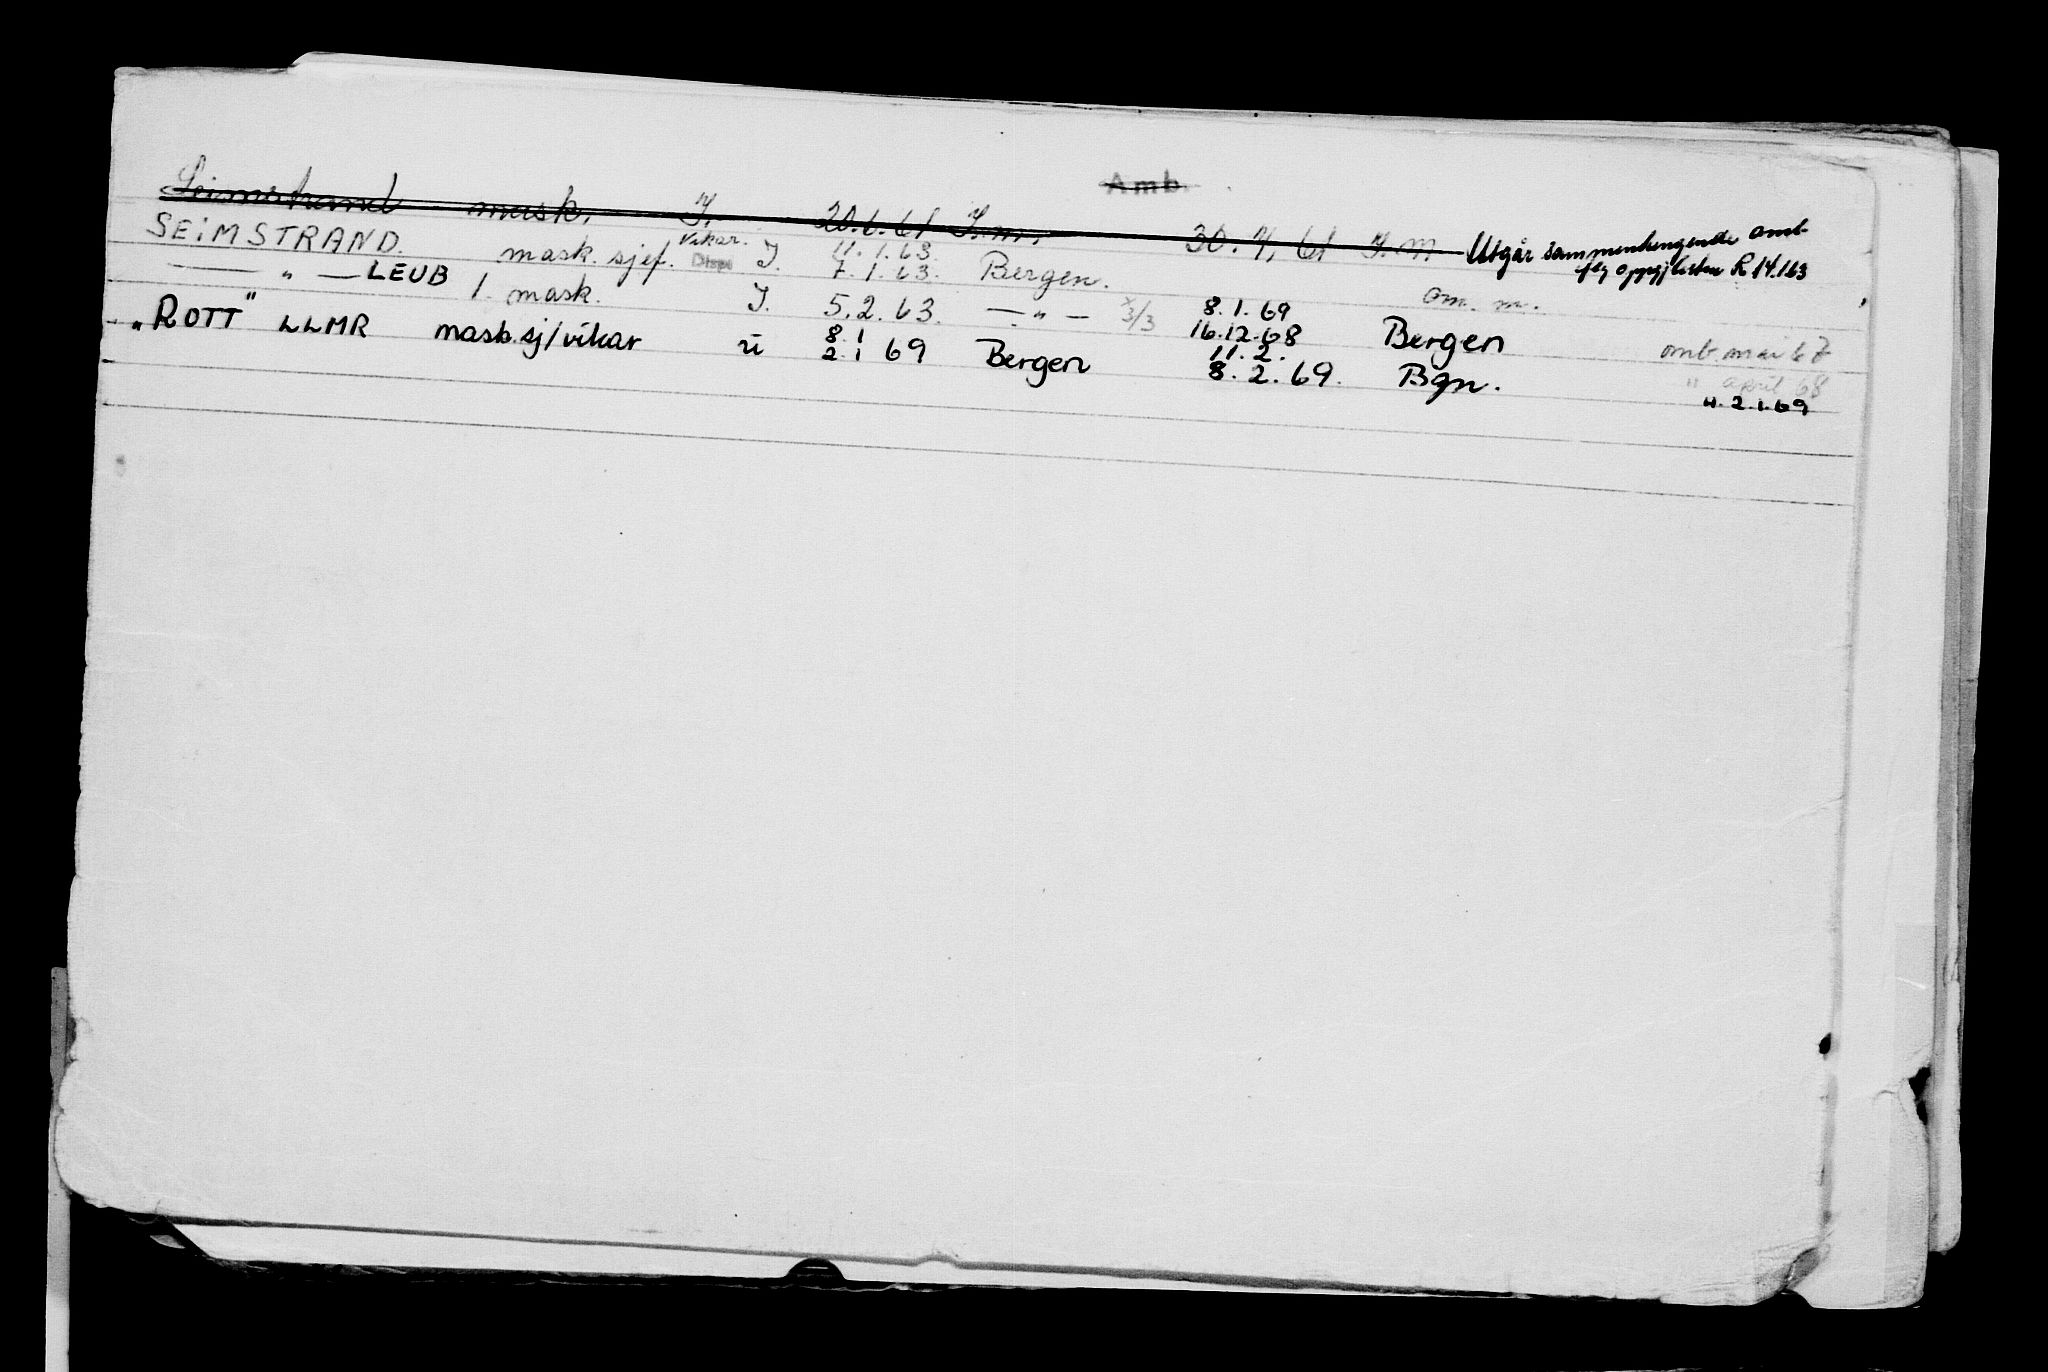 Amb.
Seimstrand mask. I. 20.6.61 I.m. 30.4.61 I.m. Utgår sammenhengende omb-
SEIMSTRAND. mask. sjef. Vikar. Disp I. 11.1.63. 7.1.63. Bergen. R 14.163
— " — LEUB 1. mask. I. 5.2.63. — " — 3/3 8.1.69 16.12.68 om. m. Bergen omb. mai 67
"ROTT" LLMR mask.sj/vikar ü 8.1 2.1 69 Bergen 11.2. 8.2.69. Bgn. " april 68
". 2.1.69